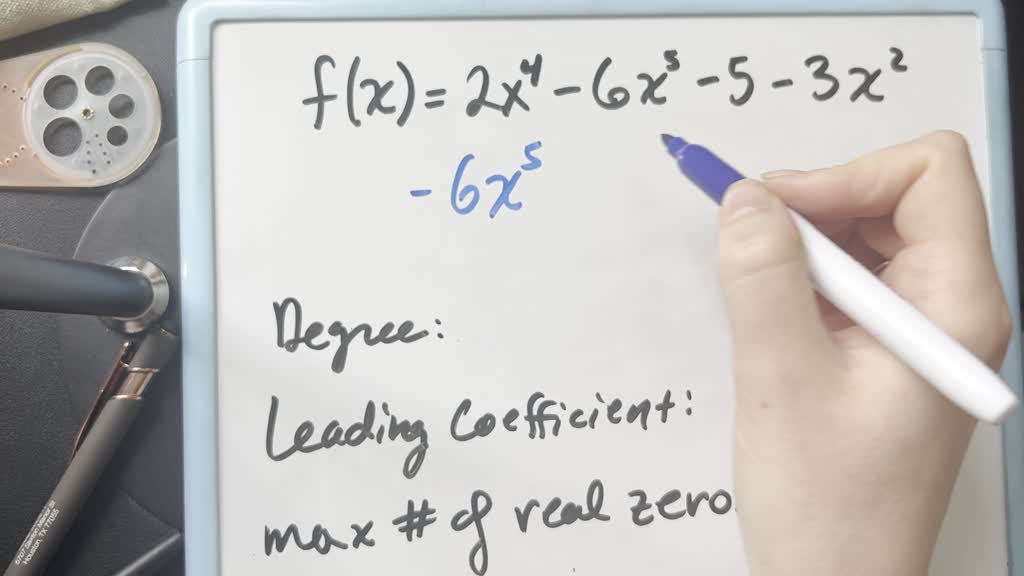 f(x) = 2x⁴ - 6x⁵ - 5 - 3x²
- 6x⁵
Degree:
Leading Coefficient:
max # of real zero